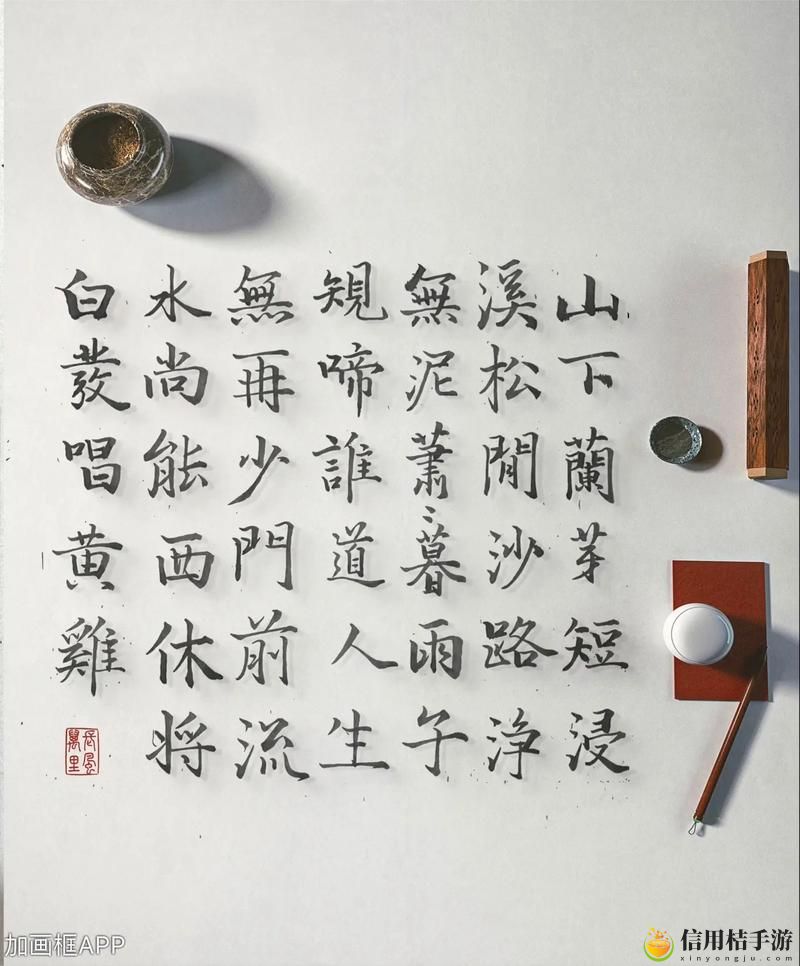 山下蘭芽短浸
溪松閒沙路淨
無泥蕭〻暮雨子
規啼誰道人生
無再少門前流
水尚能西休將
白發唱黄雞
長風萬里
加画框APP
信用桔手游
xinyongju.com